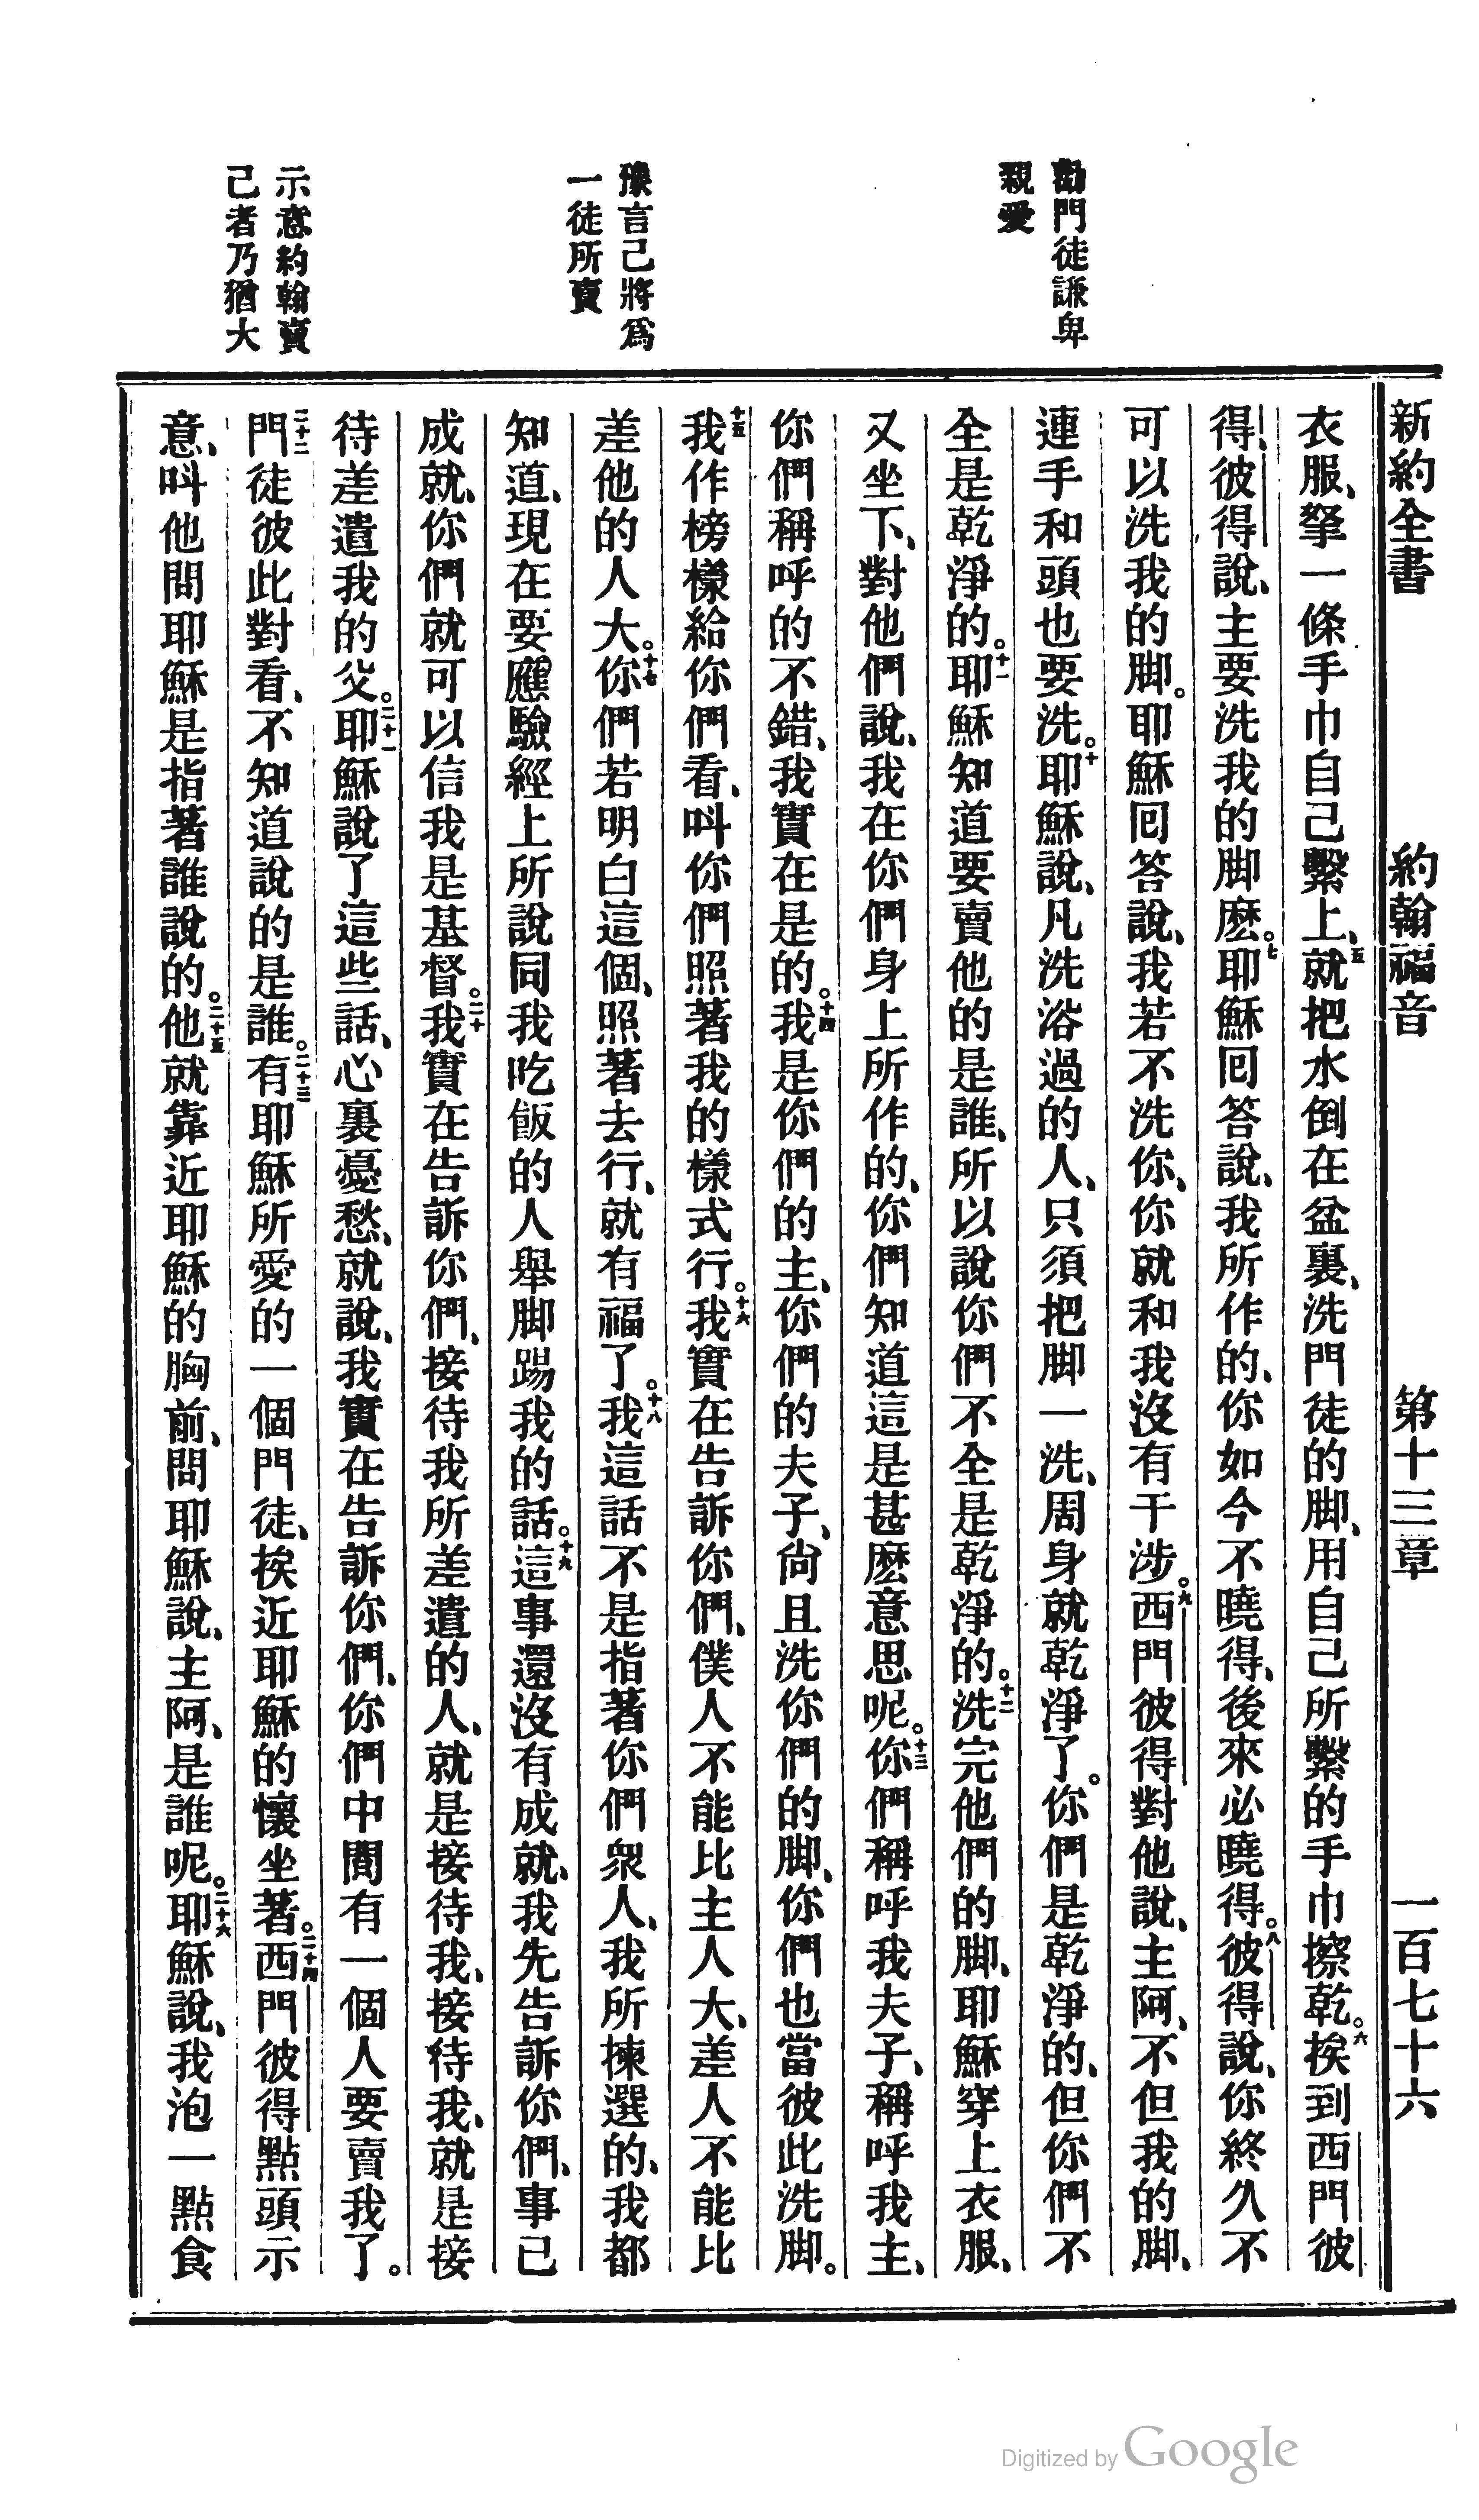 新約全書 約翰福音 第十三章 一百七十六
勸門徒謙卑
親愛
豫言己將爲
一徒所賣
示意約翰賣
己者乃猶大
衣服、拏一條手巾自己繫上、五就把水倒在盆裏、洗門徒的脚、用自己所繫的手巾擦乾。六挨到西門彼
得、彼得說、主要洗我的脚麽。七耶穌回答說、我所作的、你如今不曉得、後來必曉得。八彼得說、你終久不
可以洗我的脚。耶穌回答說、我若不洗你、你就和我沒有干涉。九西門彼得對他說、主阿、不但我的脚、
連手和頭也要洗。十耶穌說、凡洗浴過的人、只須把脚一洗、周身就乾淨了。你們是乾淨的、但你們不
全是乾淨的。十一耶穌知道要賣他的是誰、所以說你們不全是乾淨的。十二洗完他們的脚、耶穌穿上衣服、
又坐下、對他們說、我在你們身上所作的、你們知道這是甚麽意思呢。十三你們稱呼我夫子、稱呼我主、
你們稱呼的不錯、我實在是的。十四我是你們的主、你們的夫子、尙且洗你們的脚、你們也當彼此洗脚。
十五我作榜樣給你們看、叫你們照著我的樣式行。十六我實在告訴你們、僕人不能比主人大、差人不能比
差他的人大。十七你們若明白這個、照著去行、就有福了。十八我這話不是指著你們衆人、我所揀選的、我都
知道、現在要應驗經上所說同我吃飯的人舉脚踢我的話。十九這事還沒有成就、我先告訴你們、事已
成就、你們就可以信我是基督。二十我實在告訴你們、接待我所差遣的人、就是接待我、接待我、就是接
待差遣我的父。二十一耶穌說了這些話、心裏憂愁、就說、我實在告訴你們、你們中間有一個人要賣我了。
二十二門徒彼此對看、不知道說的是誰。二十三有耶穌所愛的一個門徒、挨近耶穌的懷坐著。二十四西門彼得點頭示
意、叫他問耶穌是指著誰說的。二十五他就靠近耶穌的胸前、問耶穌說、主阿、是誰呢。二十六耶穌說、我泡一點食
Digitized by Google